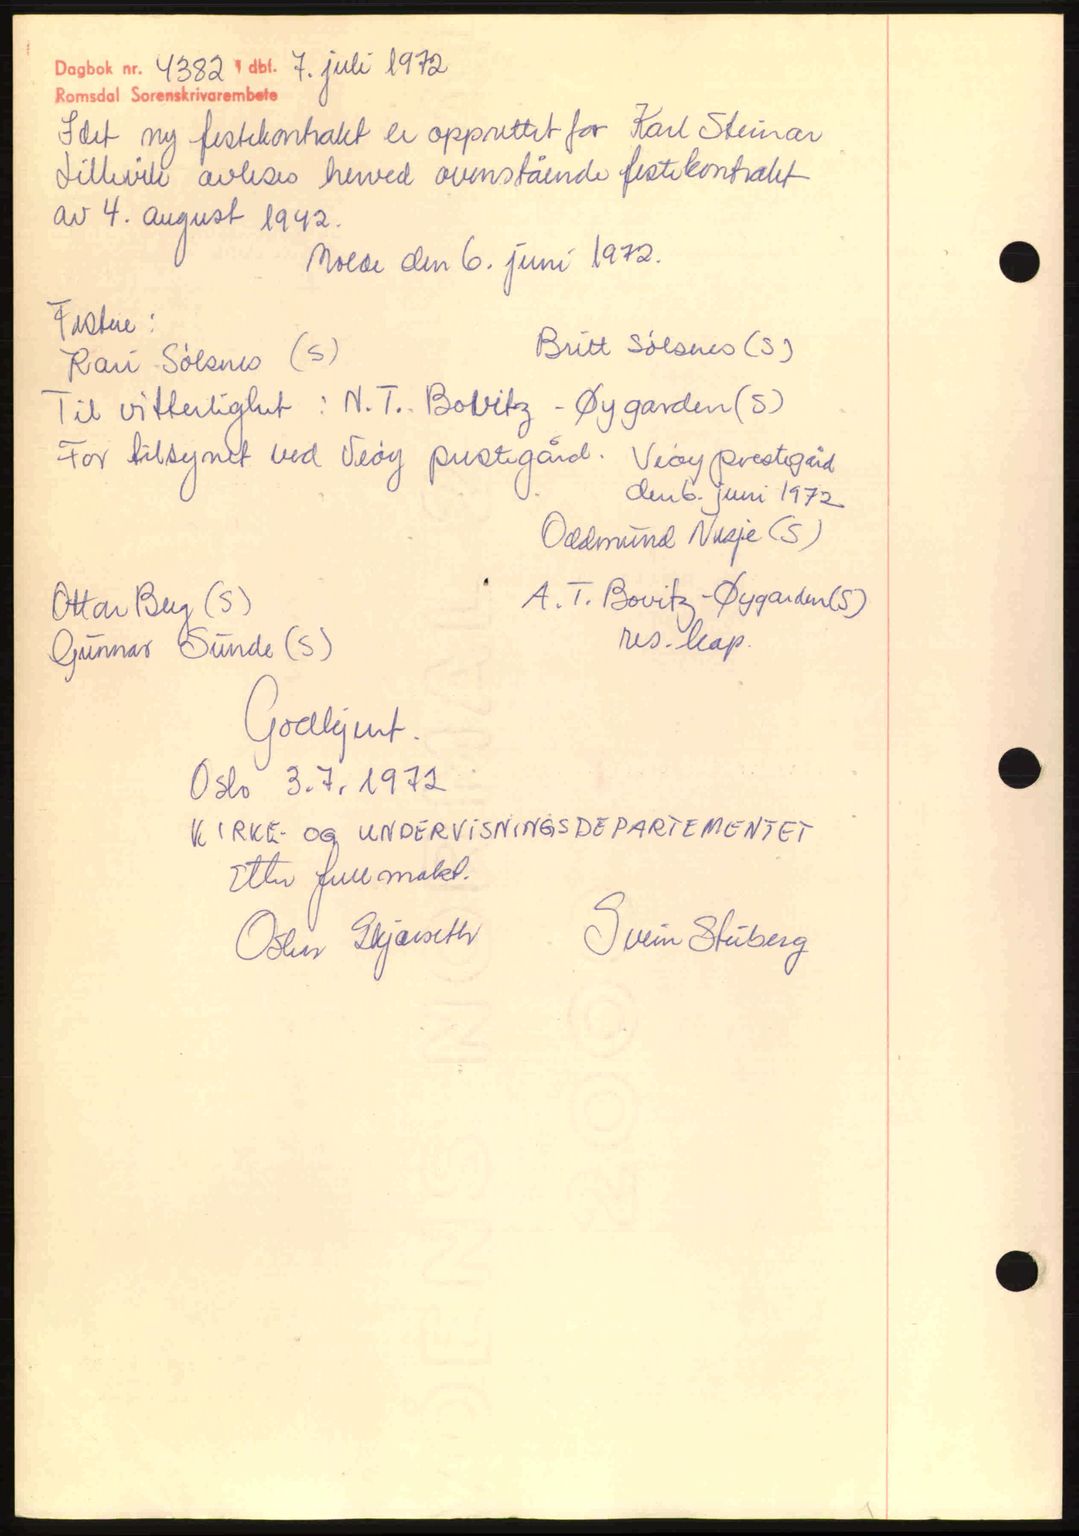 Dagbok nr. 4382 dbf. 7. juli 1972
Romsdal Sorenskrivarembete
Idet ny festekontrakt er opprettet for Karl Steinar
Lillevik avlyses herved ovenstående festekontrakt
av 4. august 1942.
Molde den 6. juni 1972.
Festere:
Kari Sølsnes (S) Britt Sølsnes (S)
Til vitterlighet : N. T. Bovitz - Øygarden (S)
For tilsynet ved Veøy prestegård. Veøy prestegård
den 6. juni 1972
Oddmund Nusje (S)
Ottar Berg (S) A. T. Bovitz - Øygarden (S)
Gunnar Sunde (S) res. kap.
Godkjent.
Oslo 3.7.1972
KIRKE- OG UNDERVISNINGSDEPARTEMENTET
Etter fullmakt.
Oskar Skjærseth Svein Stuberg